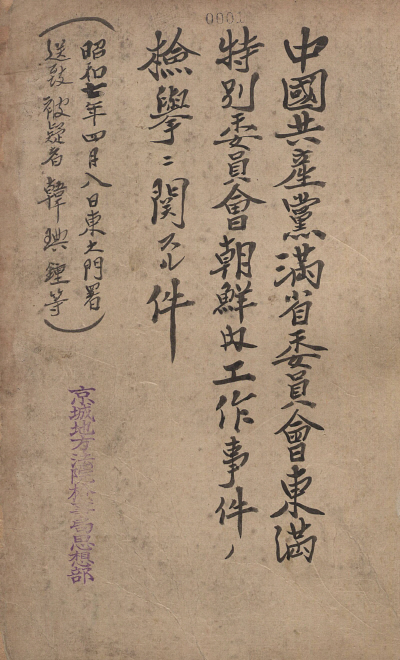 0001
中國共產黨滿省委員會東滿
特別委員會朝鮮內工作事件ノ
檢擧ニ関スル件
(昭和七年四月八日東大門署
送致被疑者韓璵鍾等)
京城地方法院検事局思想部